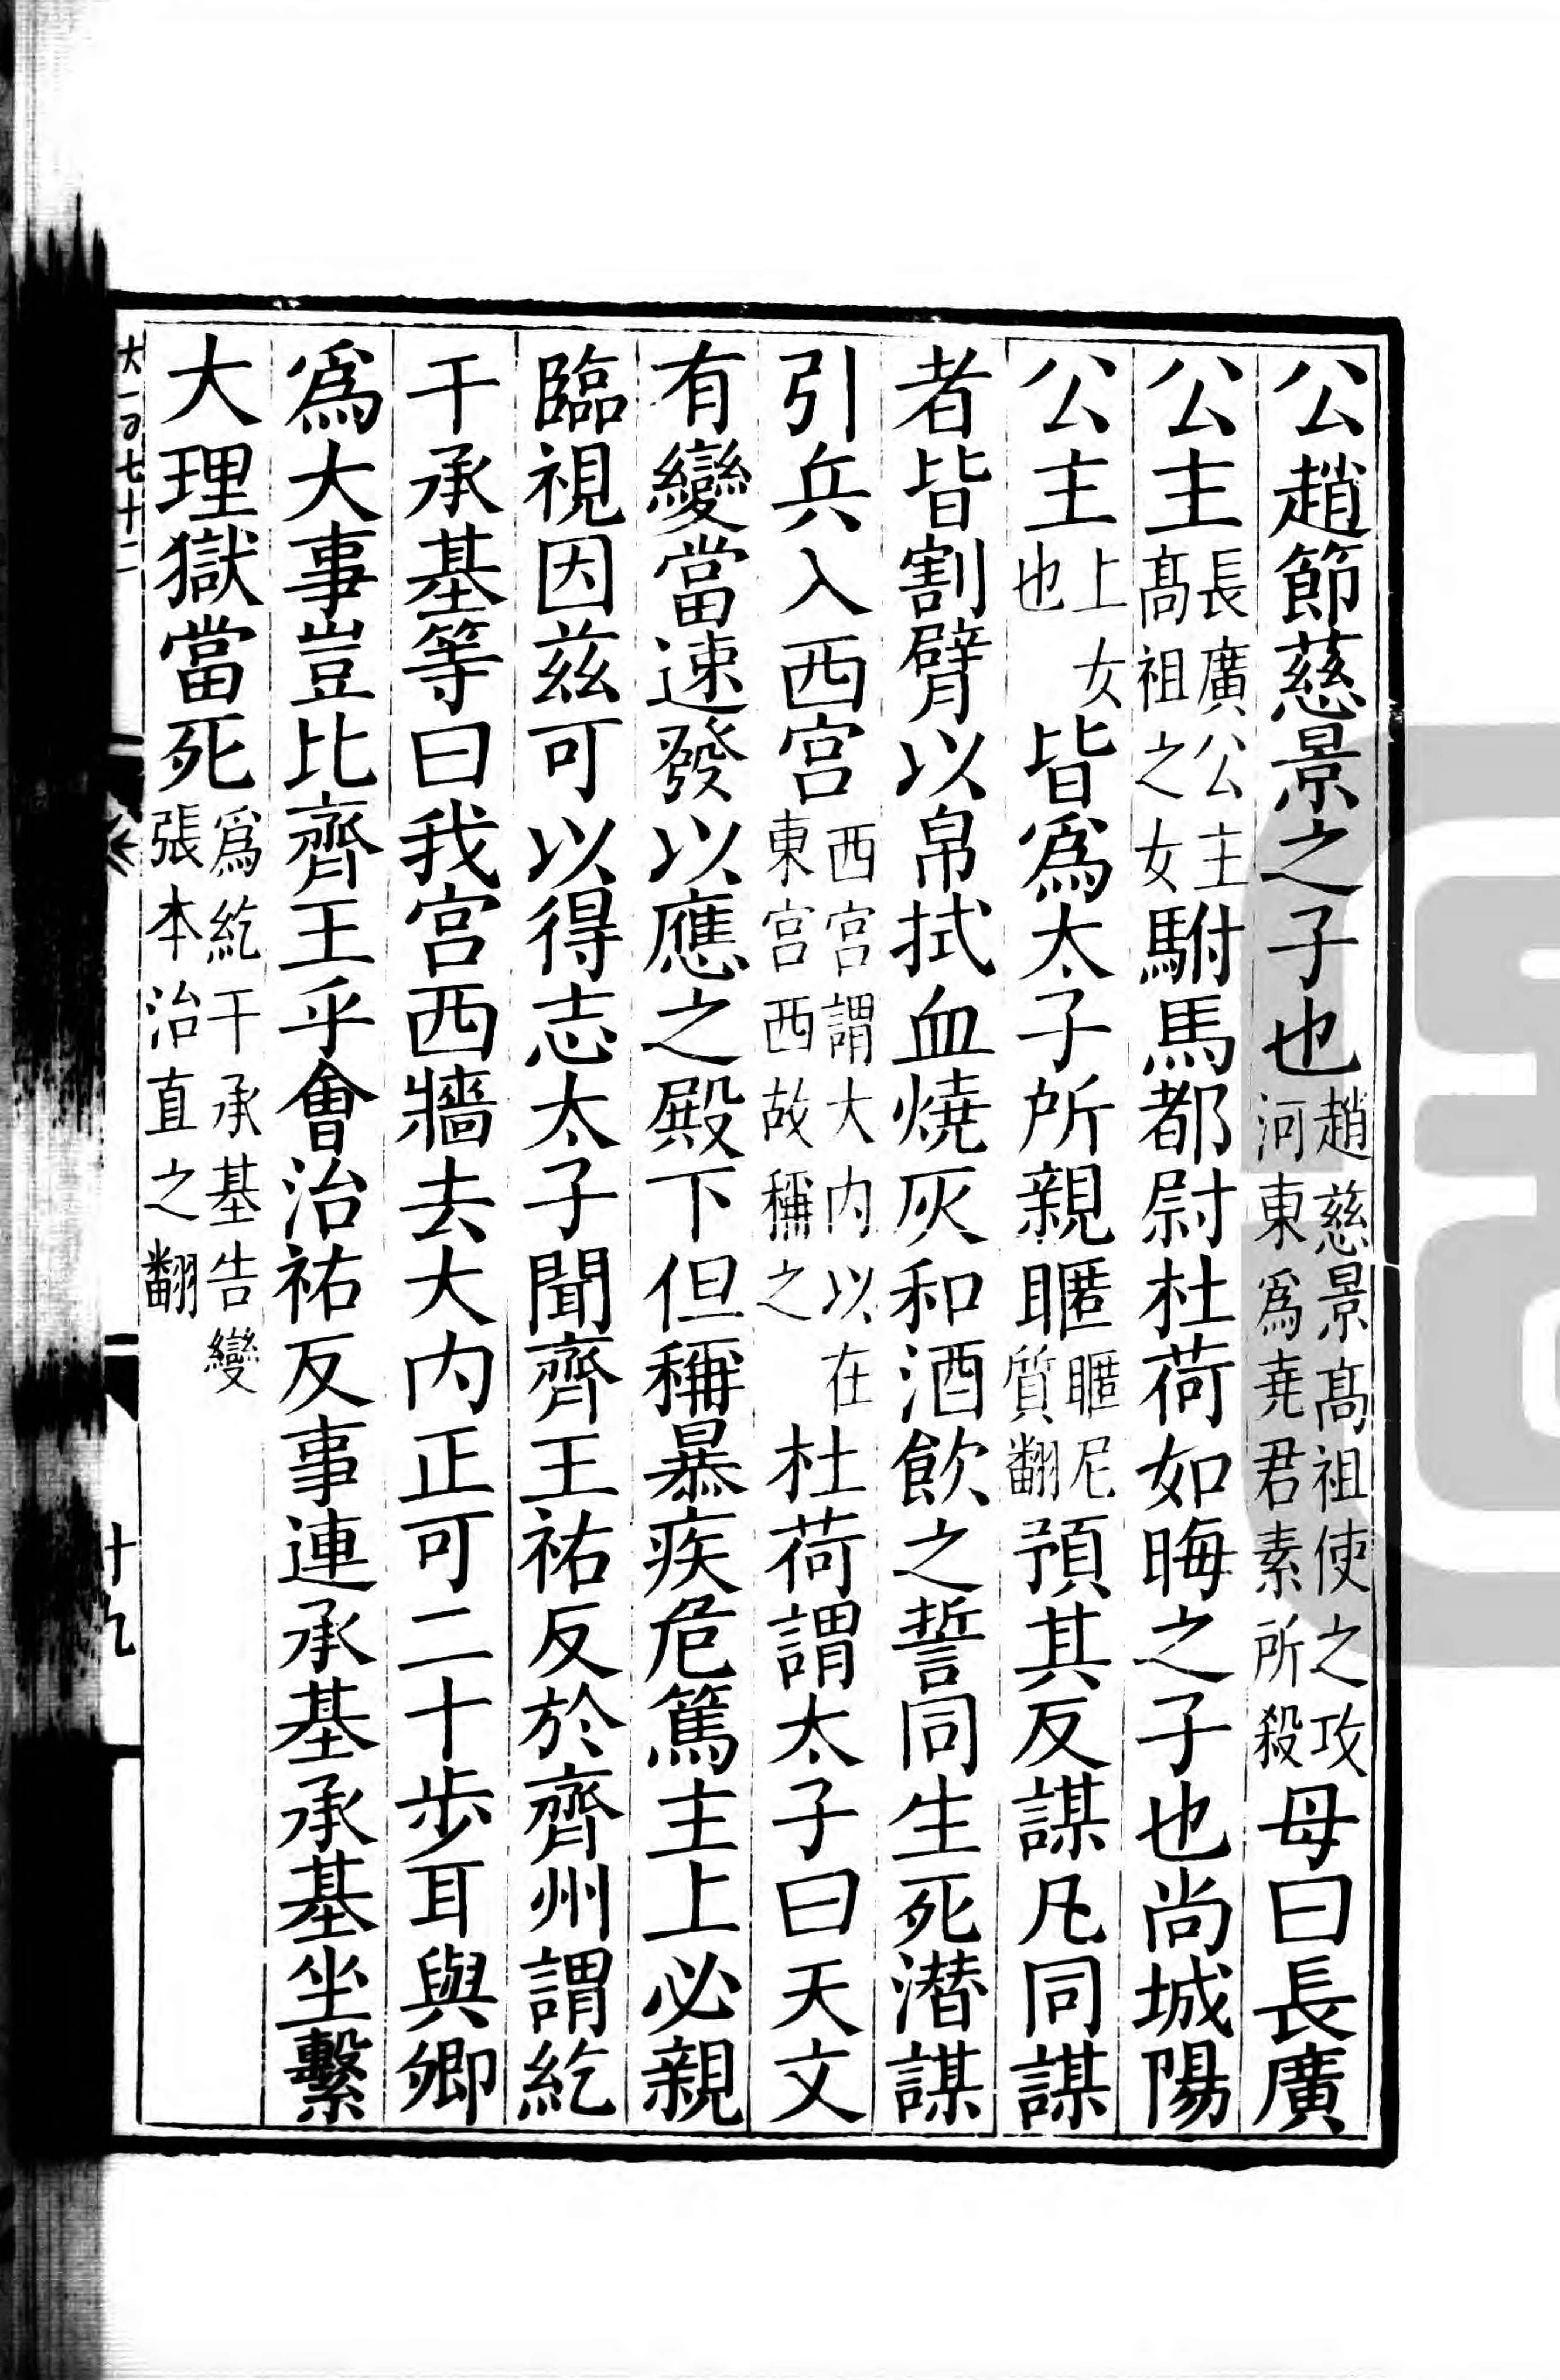 公趙節慈景之子也趙慈景高祖使之攻河東爲堯君素所殺母曰長廣
公主長廣公主高祖之女駙馬都尉杜荷如晦之子也尚城陽
公主上女也皆爲太子所親暱暱尼質翻預其反謀凡同謀
者皆割臂以帛拭血燒灰和酒飲之誓同生死潛謀
引兵入西宮西宮謂大內以在東宮西故稱之杜荷謂太子曰天文
有變當速發以應之殿下但稱暴疾危篤主上必親
臨視因茲可以得志太子聞齊王祐反於齊州謂紇
干承基等曰我宮西牆去大內正可二十步耳與卿
爲大事豈比齊王乎會治祐反事連承基承基坐繫
大理獄當死爲紇干承基告變張本治直之翻